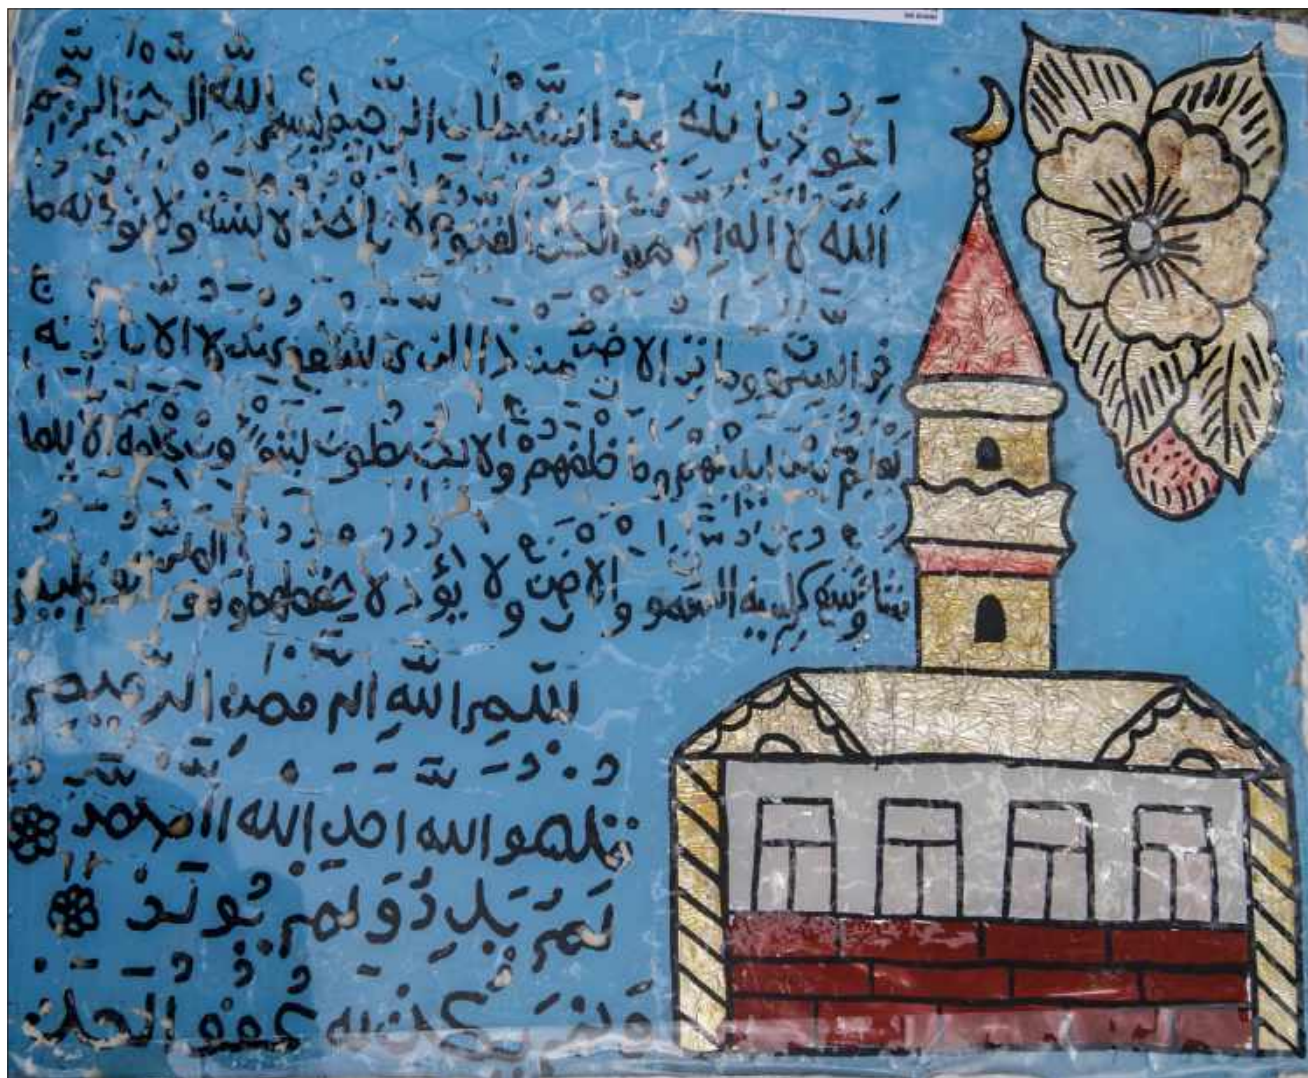 أعوذ بالله من الشيطان الرجيم بسم الله الرحمن الرحيم
الله لا اله الا هو الحي القيوم لا تأخذ لا سنة ولا نوم له ما
في السموت وما في الارض من ذا الذي يشفع عنده الا باذنه
يعلم بين ايديهم وما خلفهم ولا يحيطون بشئ من علمه الا بما
شا وسع كرسيه السمو والارض ولا يؤد لا حفظهما وهو العلي العظيم
بسم الله الرحمن الرحيم
قل هو الله احد الله الصمد
لم يلد ولم يولد
ولم يكن له كفوا احد